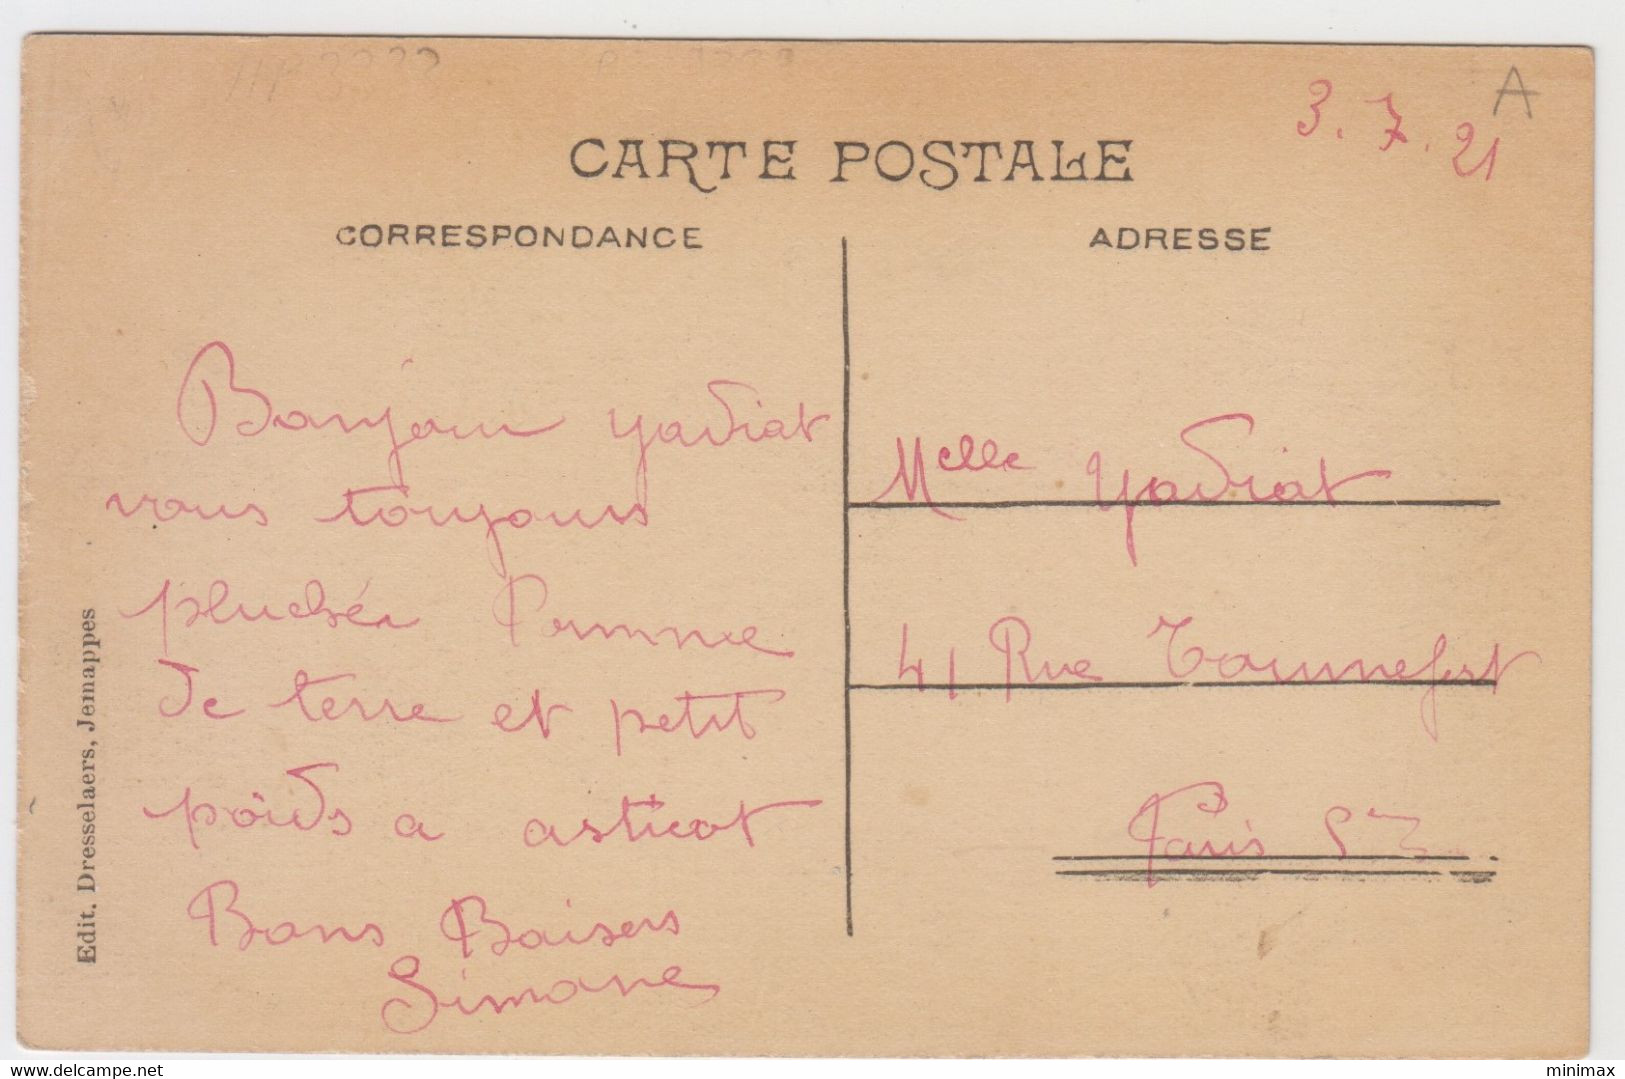 3.7.21
A
CARTE POSTALE
CORRESPONDANCE
ADRESSE
Bonjour yadviat
vous toujours
pluchér Pomme
De terre et petit
poids a asticot
Bons Baisers
Simone
Melle Yadviat
41 Rue Tournefort
Paris 5
Edit. Dresselaers, Jemappes
delcampe.net
minimax